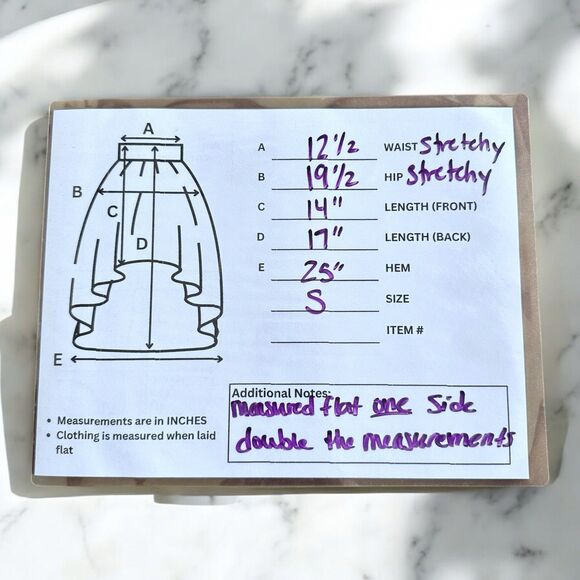 A
B
C
D
E
A 12 1/2 WAIST Stretchy
B 19 1/2 HIP Stretchy
C 14" LENGTH (FRONT)
D 17" LENGTH (BACK)
E 25" HEM
S SIZE
ITEM #
Additional Notes:
Measured flat one Side
double the measurements
• Measurements are in INCHES
• Clothing is measured when laid
flat